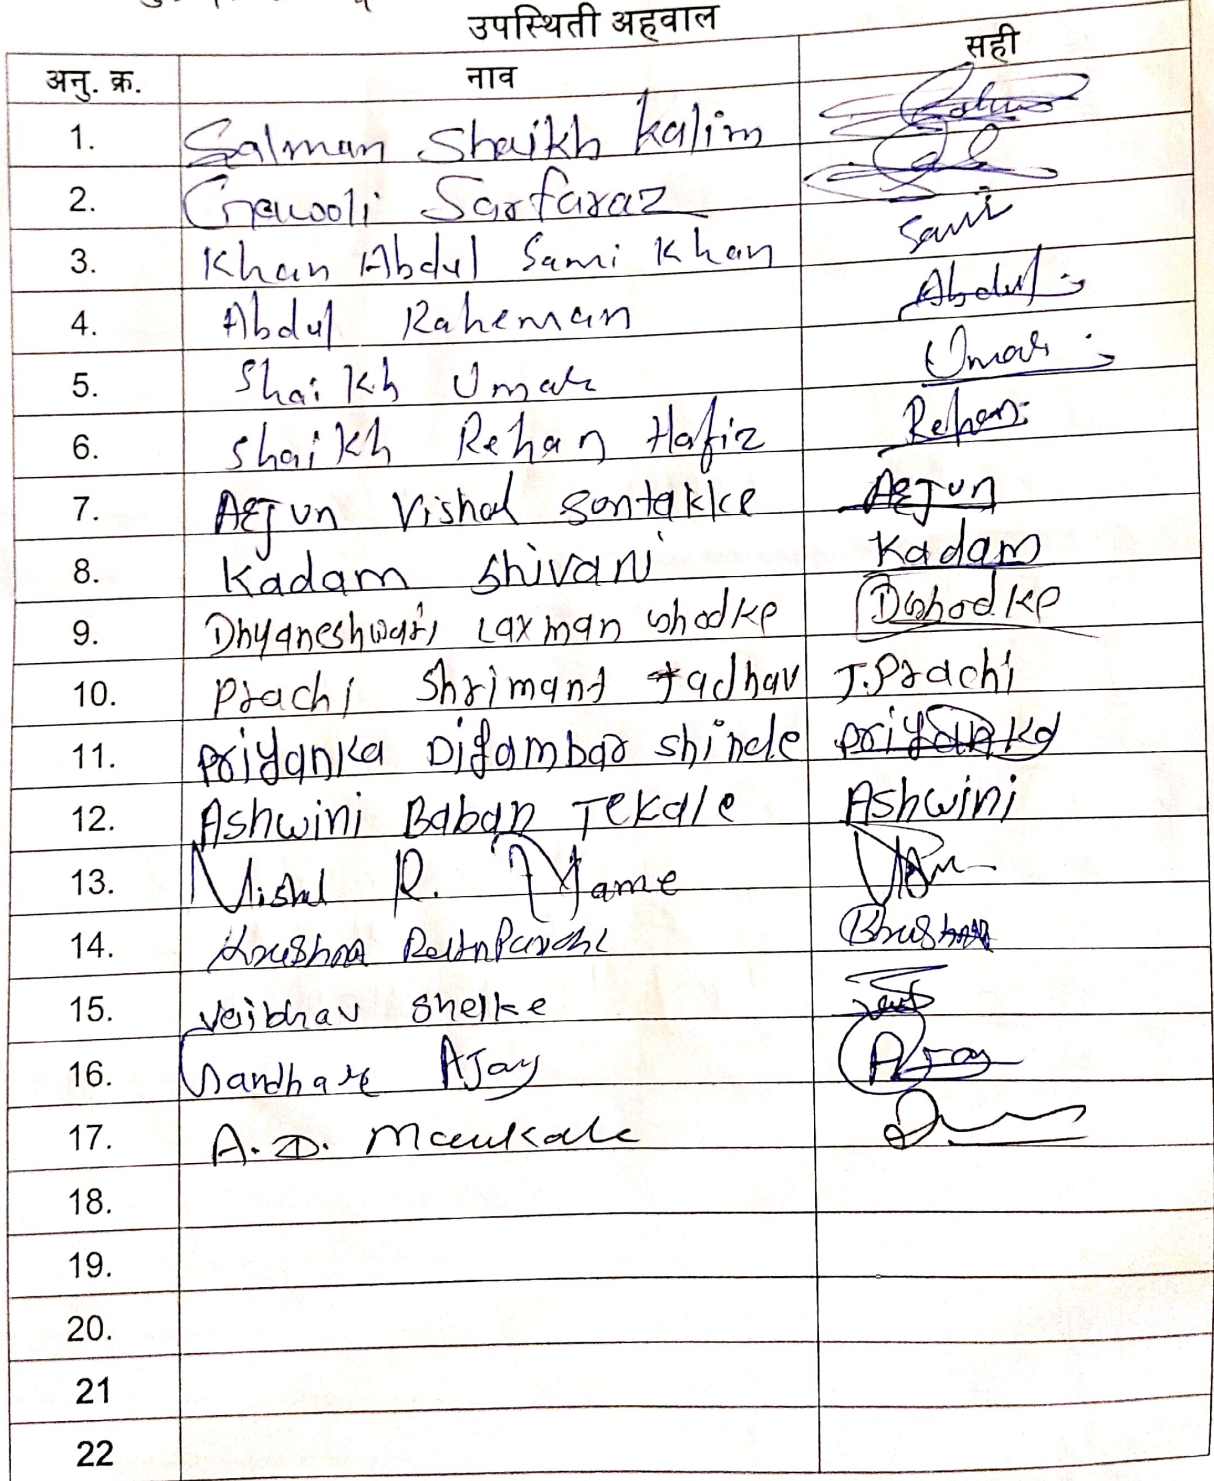 उपस्थिती अहवाल
अनु. क्र. नाव सही
1. Salman Shaikh Kalim
2. Gawooli Sarfaraz
3. Khan Abdul Sami Khan Sami
4. Abdul Raheman Abdul
5. Shaikh Umar Umar
6. Shaikh Rehan Hafiz Rehan
7. Arjun Vishal Sontakke Arjun
8. Kadam Shivani Kadam
9. Dhyaneshwari Laxman Ghodke DGhodke
10. Prachi Shrimant Jadhav J.Prachi
11. Priyanka Digambar Shinde Priyanka
12. Ashwini Baban Tekale Ashwini
13. R.
14. Krushna Krushna
15. Vaibhav Shelke
16. Ajay Ajay
17. A. D.
18.
19.
20.
21
22